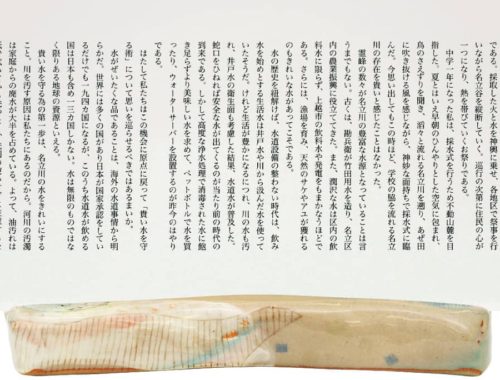 である。採取した火と水を神輿に乗せ、各地区で祭事を行
いながら名立谷を縦断していく。巡行の次第に住民の心が
一つになり、熱を帯びていくお祭りである。
中学一年になった私は、採水式を行うため不動山麓を目
指した。夏とはいえ早朝のひんやりとした空気に包まれ、
鳥のさえずりを聞き、滔々と流れる名立川を遡り、あぜ田
に吹き抜ける風を感じながら、神妙な面持ちで採水式に臨
んだ。今思い出してもこの時ほど、学校の脇を流れる名立
川の存在を貴いと感じたことはなかった。
霊峰の数々が名立川の豊富な水源となっていることは言
うまでもない。古くは、勘兵衛が竹田用水を造り、名立区
内の農業振興に役立ててきた。また、潤沢な水は区内の飲
料水に限らず、上越市の飲料水や発電をもまかなうほどで
ある。さらには、漁場を育み、天然のサケやアユが獲れる
のもきれいな水があってこそである。
水の歴史を紐解けば、水道設備の整わない時代は、飲み
水を始めとする生活水は井戸水や川から汲んだ水を使って
いたそうだ。けれど生活が豊かになるにつれ、川の水も汚
れ、井戸水の衛生面も考慮した結果、水道水が普及した。
蛇口をひねれば安全な水が出てくるのが当たり前の時代の
到来である。しかして高度な浄水処理で消毒された水に飽
き足らずより美味しい水を求めて、ペットボトルで水を買
ったり、ウォーターサーバーを設置するのが昨今のはやり
である。
はたして私たちはこの機会に原点に戻って「貴い水を守
る術」について思いを巡らせるべきではあるまいか。
水がぜいたくな品であることは、海外の水道事情から明
らかだ。世界には多くの国があり日本が国家承認をしてい
るだけでも一九四か国になるが、このうち水道水が飲める
国は日本も含め一二カ国しかない。水は無限のものではな
く限りある地球の資源といえる。
貴い水を守る為の第一歩は、名立川の水をきれいにする
こと。川を汚す原因は私たちにあるのだから。河川の汚濁
は家庭からの廃水が大半を占めている。よって、油汚れは